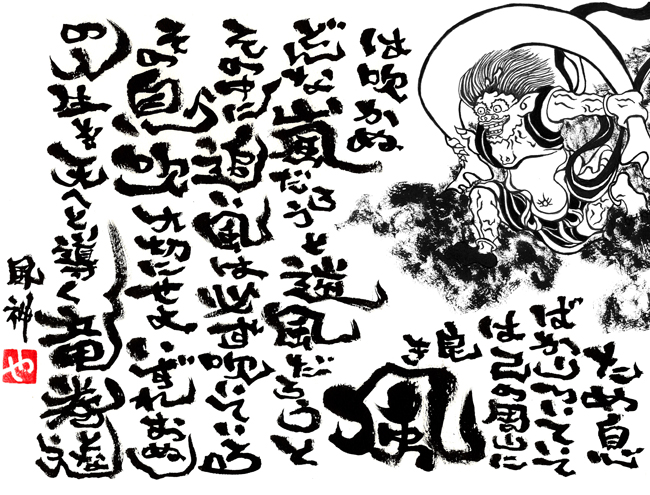 ため息
ばかりついていて
は己の周りに
良き
風
は吹かぬ
どんな嵐だろうと逆風だろうと
その中に追い風は必ず吹いている
その息吹大切にせよいずれおぬ
しを天へと導く竜巻と
風神
や